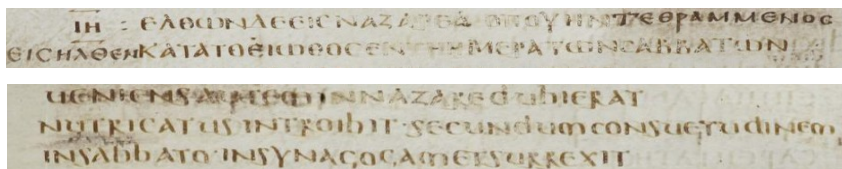 ΙΗ : ΕΛΘΩΝΔΕΕΙϹΝΑΖΑΡΕΔ ΟΠΟΥΗΝΤΕΘΡΑΜΜΕΝΟϹ
ΕΙϹΗΛΘΕΝΚΑΤΑΤΟΕΙΩΘΟϹΕΝΤΗΗΜΕΡΑΤΩΝϹΑΒΒΑΤΩΝ
UENIENS AUTEM IN NAZARED UBI ERAT
NUTRICATUS INTROIBIT · SECUNDUM CONSUETUDINEM
IN SABBATO · IN SYNAGOGAM ET SURREXIT